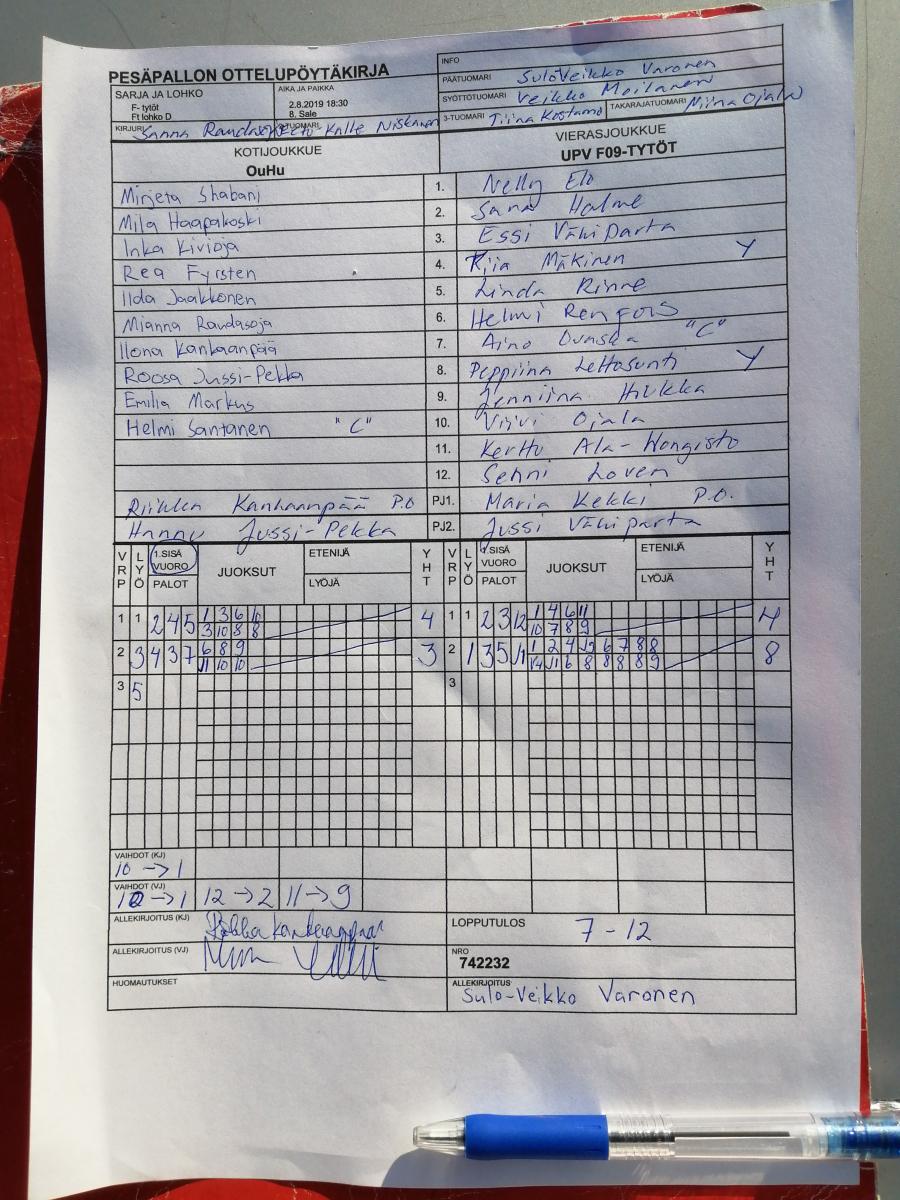 PESÄPALLON OTTELUPÖYTÄKIRJA
INFO
PÄÄTUOMARI Sulo-Veikko Varonen
SARJA JA LOHKO
F- tytöt
Ft lohko D
AIKA JA PAIKKA
2.8.2019 18:30
8, Sale
SYÖTTÖTUOMARI Veikko Moilanen
KIRJURI Sanna Raudasoja
2-TUOMARI Kalle Niskanen
3-TUOMARI Tiina Kostamo
TAKARAJATUOMARI Niina Ojala
KOTIJOUKKUE
OuHu
VIERASJOUKKUE
UPV F09-TYTÖT
Mirjeta Shabani 1. Nelly Elo
Mila Haapakoski 2. Sana Halme
Inka Kivioja 3. Essi Vähiparta
Rea Fyrsten 4. Riia Mäkinen Y
Ilda Jaakkonen 5. Linda Rinne
Mianna Raudasoja 6. Helmi Renfors
Ilona Kankaanpää 7. Aino "C"
Roosa Jussi-Pekka 8. Peppiina Lettosunti Y
Emilia Markus 9. Jenniina Hiukka
Helmi Santanen "C" 10. Viivi Ojala
11. Kerttu Ala-Hongisto
12. Senni Loven
Riikka Kankaanpää P.O PJ1. Maria Kekki P.O.
Hannu Jussi-Pekka PJ2. Jussi Vähiparta
VRP LYÖ 1.SISÄ VUORO PALOT JUOKSUT ETENIJÄ LYÖJÄ YHT VRP LYÖ 1.SISÄ VUORO PALOT JUOKSUT ETENIJÄ LYÖJÄ YHT
1 1 2 4 5 1 3 6 10 4 1 1 2 3 12 1 4 6 11 4
3 10 8 8 10 7 8 9
2 3 4 3 7 6 8 9 3 2 1 3 5 11 1 2 4 6 7 8 8 8
11 10 10 6 8 8 8 8 9
3 5 3
VAIHDOT (KJ)
10 → 1
VAIHDOT (VJ)
10 → 1 12 → 2 11 → 9
ALLEKIRJOITUS (KJ) Riikka Kankaanpää
LOPPUTULOS 7 - 12
ALLEKIRJOITUS (VJ)
NRO
742232
HUOMAUTUKSET
ALLEKIRJOITUS
Sulo-Veikko Varonen